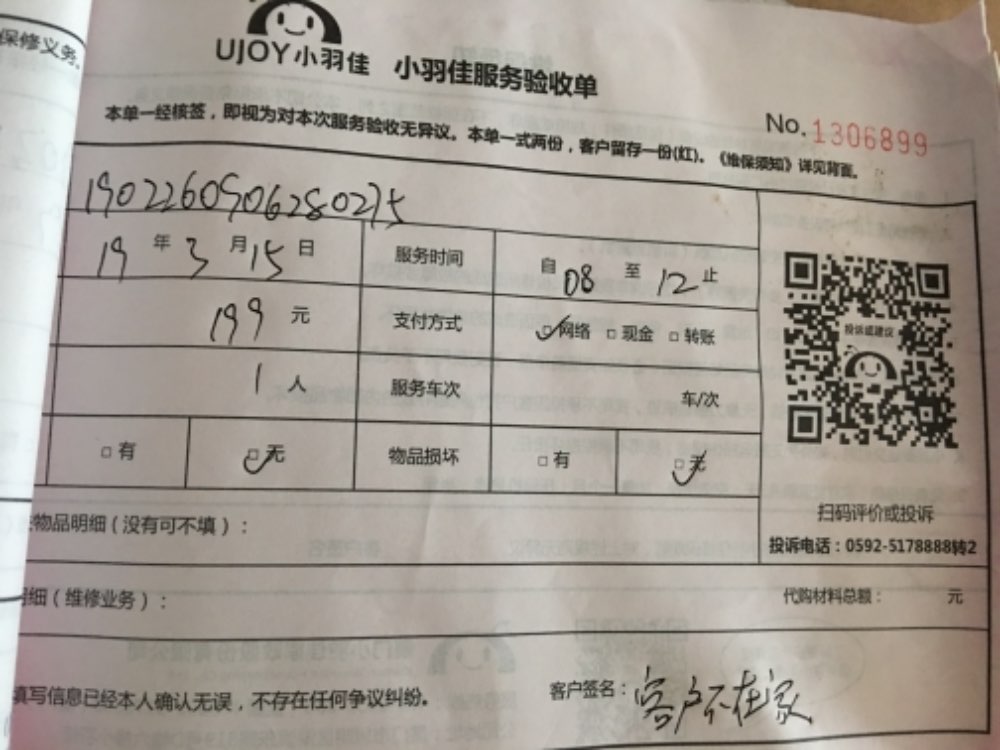 保修义务。
UJOY小羽佳 小羽佳服务验收单
本单一经核签，即视为对本次服务验收无异议。本单一式两份，客户留存一份(红)。《维保须知》详见背面。
No.1306899
1902260906280275
19 年 3 月 15 日 服务时间 自 08 至 12 止
199 元 支付方式 ☑网络 □现金 □转账
投诉或建议
1 人 服务车次 车/次
□有 ☑无 物品损坏 □有 ☑无
扫码评价或投诉
物品明细（没有可不填）：
投诉电话：0592-5178888转2
明细（维修业务）： 代购材料总额： 元
填写信息已经本人确认无误，不存在任何争议纠纷。 客户签名：客户不在家